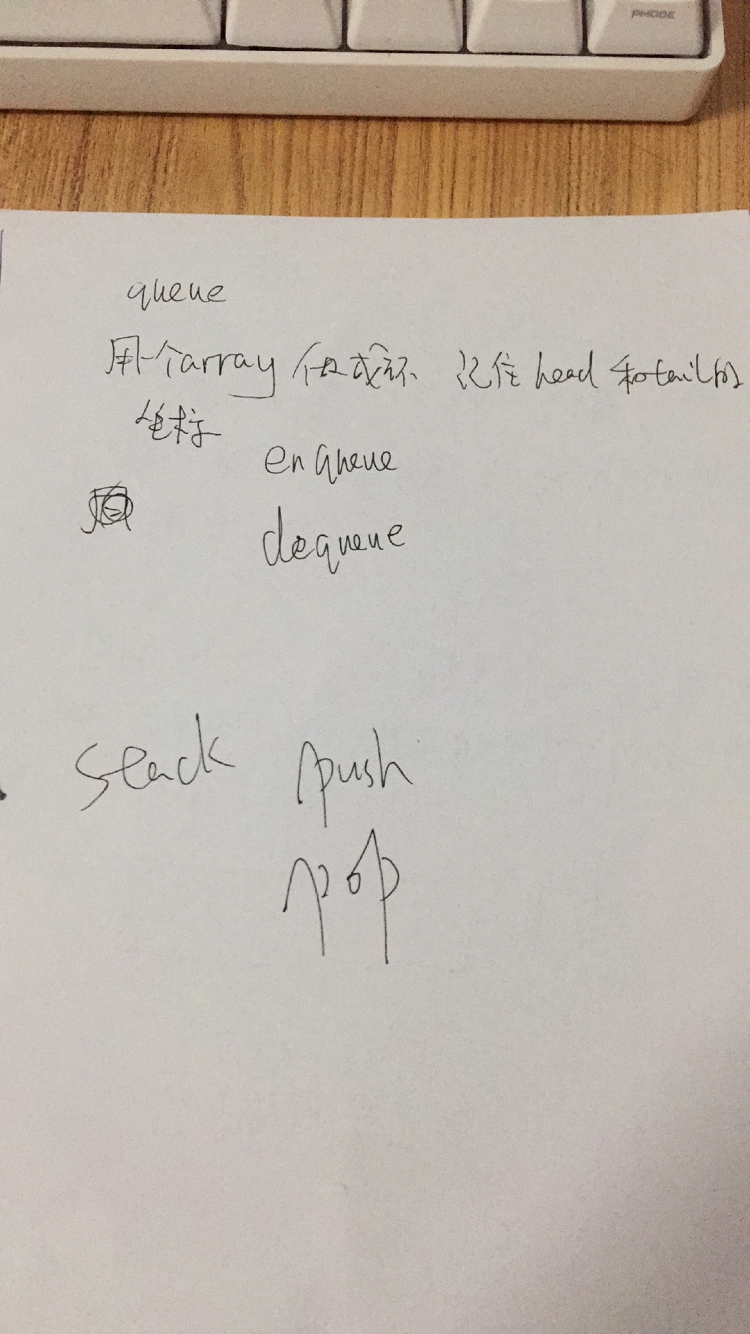 PMODE
queue
用一个array 做成环 记住head和tail的
坐标
enqueue
dequeue
stack push
pop